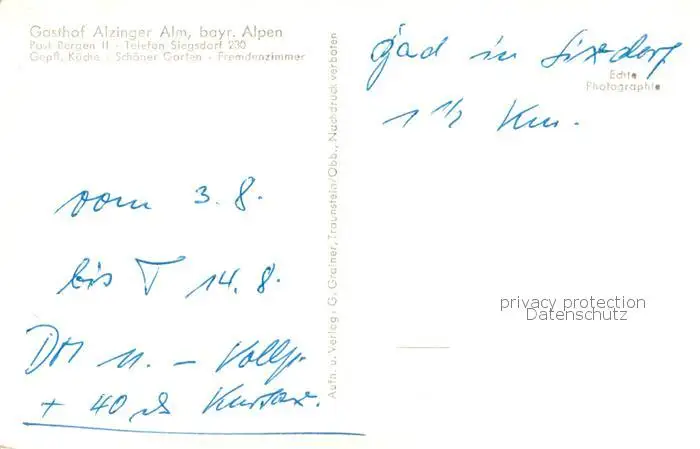 Gasthof Alzinger Alm, bayr. Alpen
Post Bergen II - Telefon Siegsdorf 230
Gepfl. Küche - Schöner Garten - Fremdenzimmer
vom 3.8.
bis 14.8.
DM 11.— Vollp.
+ 40 Kurtaxe.
Aufn. u. Verlag: G. Grainer, Traunstein/Obb., Nachdruck verboten
in
1 1/2 Km.
Echte
Photographie
privacy protection
Datenschutz